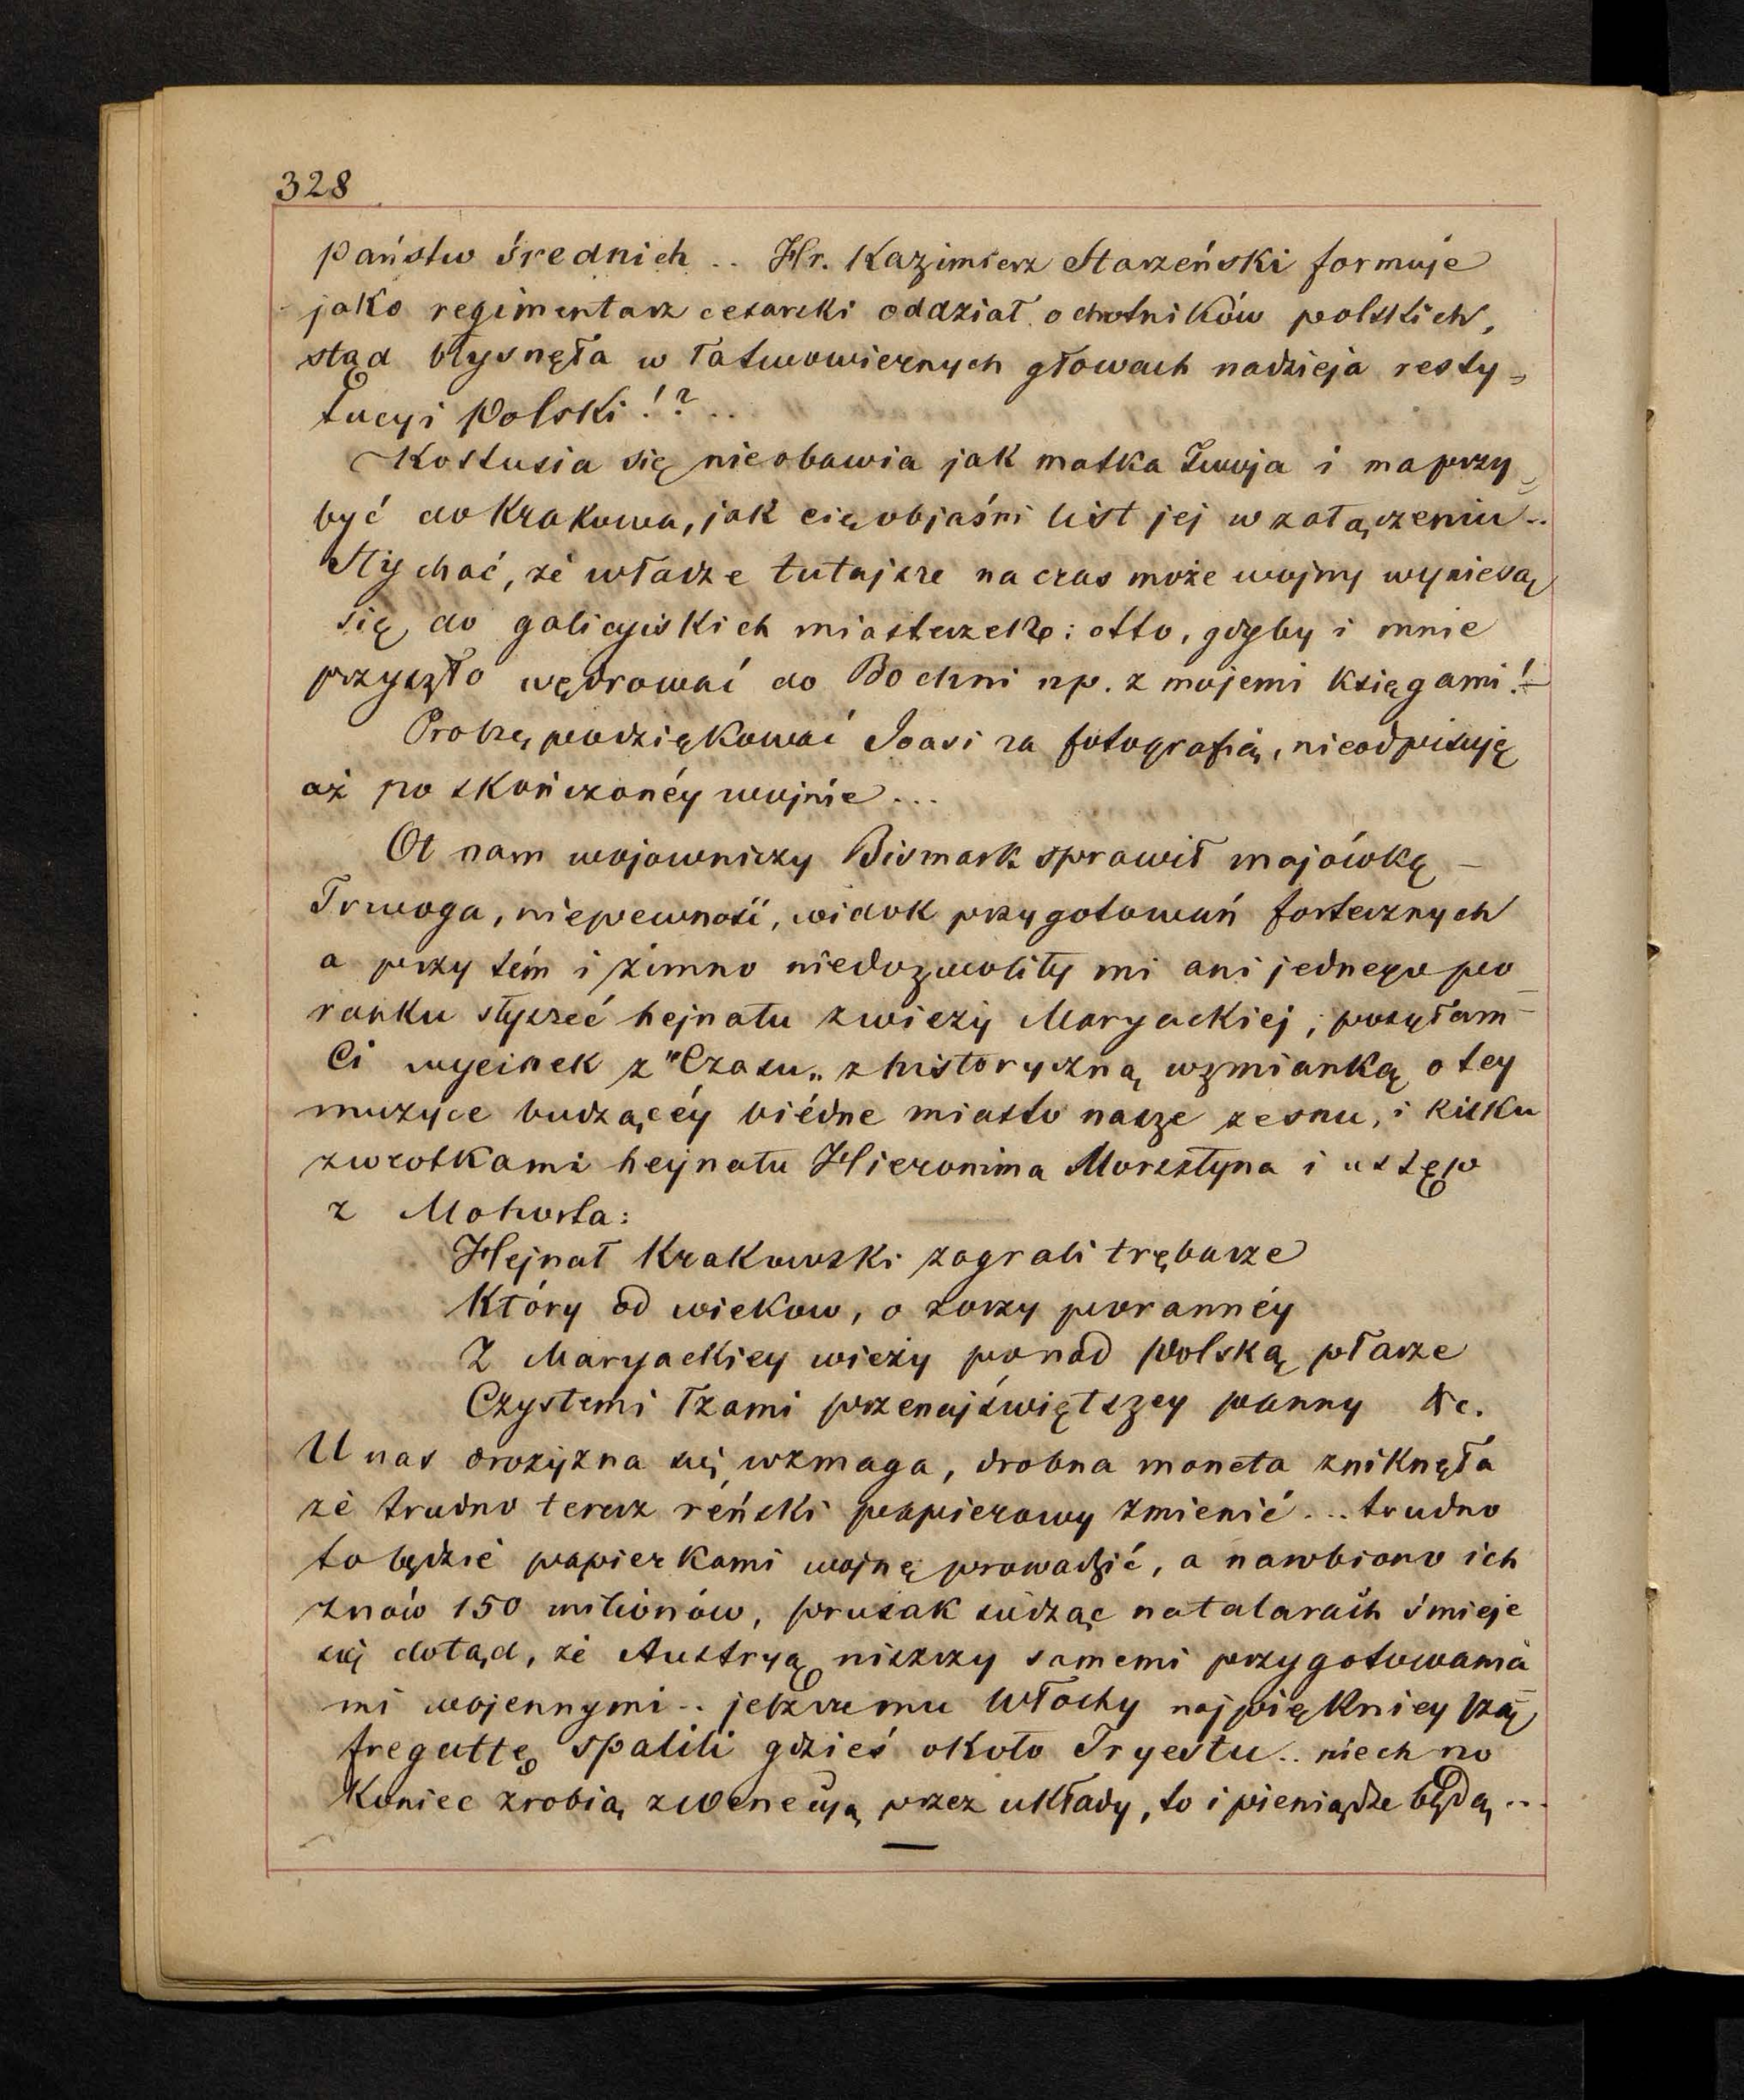 328
państw średnich .. Hr. Kazimierz Starzeński formuje
jako regimentarz cesarski oddział ochotników polskich,
stąd błysnęła w łatwowiernych głowach nadzieja resty=
tucyi Polski!? ..
Kostusia się nieobawia jak matka Twoja i ma przy=
być do Krakowa, jak cię objaśni list jej w załączeniu ..
Słychać, że władze tutajsze na czas może wojny wyniesą
się do galicyjskich miasteczek: otto, gdyby i mnie
przyszło wędrować do Bochni np. z mojemi księgami! –
Proszę podziękować Joasi za fotografią, nieodpisuję
aż po skończonéy wojnie ...
Ot nam wojowniczy Bismark sprawił majówkę –
Trwoga, niepewność, widok przygotowań fortecznych
a przy tém i zimno niedozwoliły mi ani jednego po-
ranku słyszeć hejnału z wieży Maryackiej; posyłam
Ci wycinek z "Czasu„ z historyczną wzmianką o tey
muzyce budzącéy biédne miasto nasze ze snu, i kilku
zwrotkami heynału Hieronima Morsztyna i ustęp
z Mohorta:
Hejnał Krakowski zagrali trębacze
Który od wiekow, o zorzy porannéy
Z Maryackiey wieży ponad Polską płacze
Czystemi łzami przenajświętszey panny &c.
U nas drożyzna się wzmaga, drobna moneta zniknęła
że trudno teraz réński papierowy zmienić ... trudno
to będzie papierkami wojnę prowadzić, a narobiono ich
znów 150 milionów, prusak siedząc na talarach śmieje
się dotąd, że Austryą niszczy samemi przygotowania
mi wojennymi .. jeszcze mu Włochy najpiękniey szą
fregattę spalili gdzieś około Tryestu .. niech no
Koniec zrobią z Wenecyą przez układy, to i pieniądze będą ...